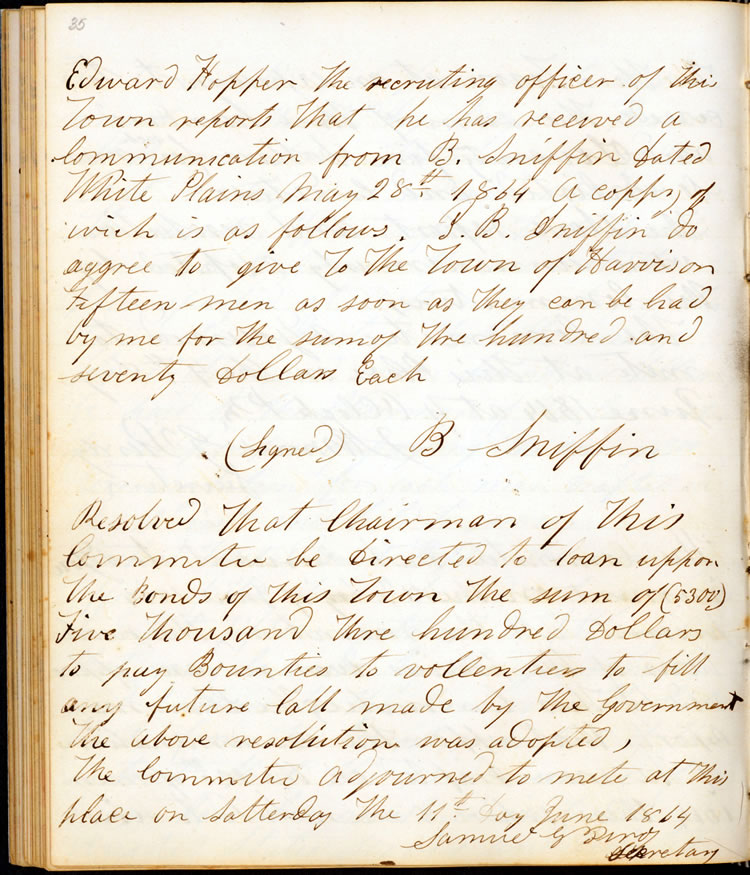 35
Edward Hopper the recruting officer of this
Town reports that he has received a
Communication from B. Sniffin Dated
White Plains May 28th 1864 A coppy of
wich is as follows. I. B. Sniffin do
aggree to give to the Town of Harrison
Fifteen men as soon as they can be had
by me for the sum of thre hundred and
seventy Dollars Each
(Signed) B Sniffin
Resolved that Chairman of this
Committee be Directed to loan uppon
the Bonds of this Town the sum of (5300)
Five thousand thre hundred Dollars
to pay Bounties to vollentiers to fill
any future Call made by the Government
the above resolution was adopted,
the Committee adjourned to mete at this
place on Satterday the 11th Day June 1864
Samuel G
Secretary